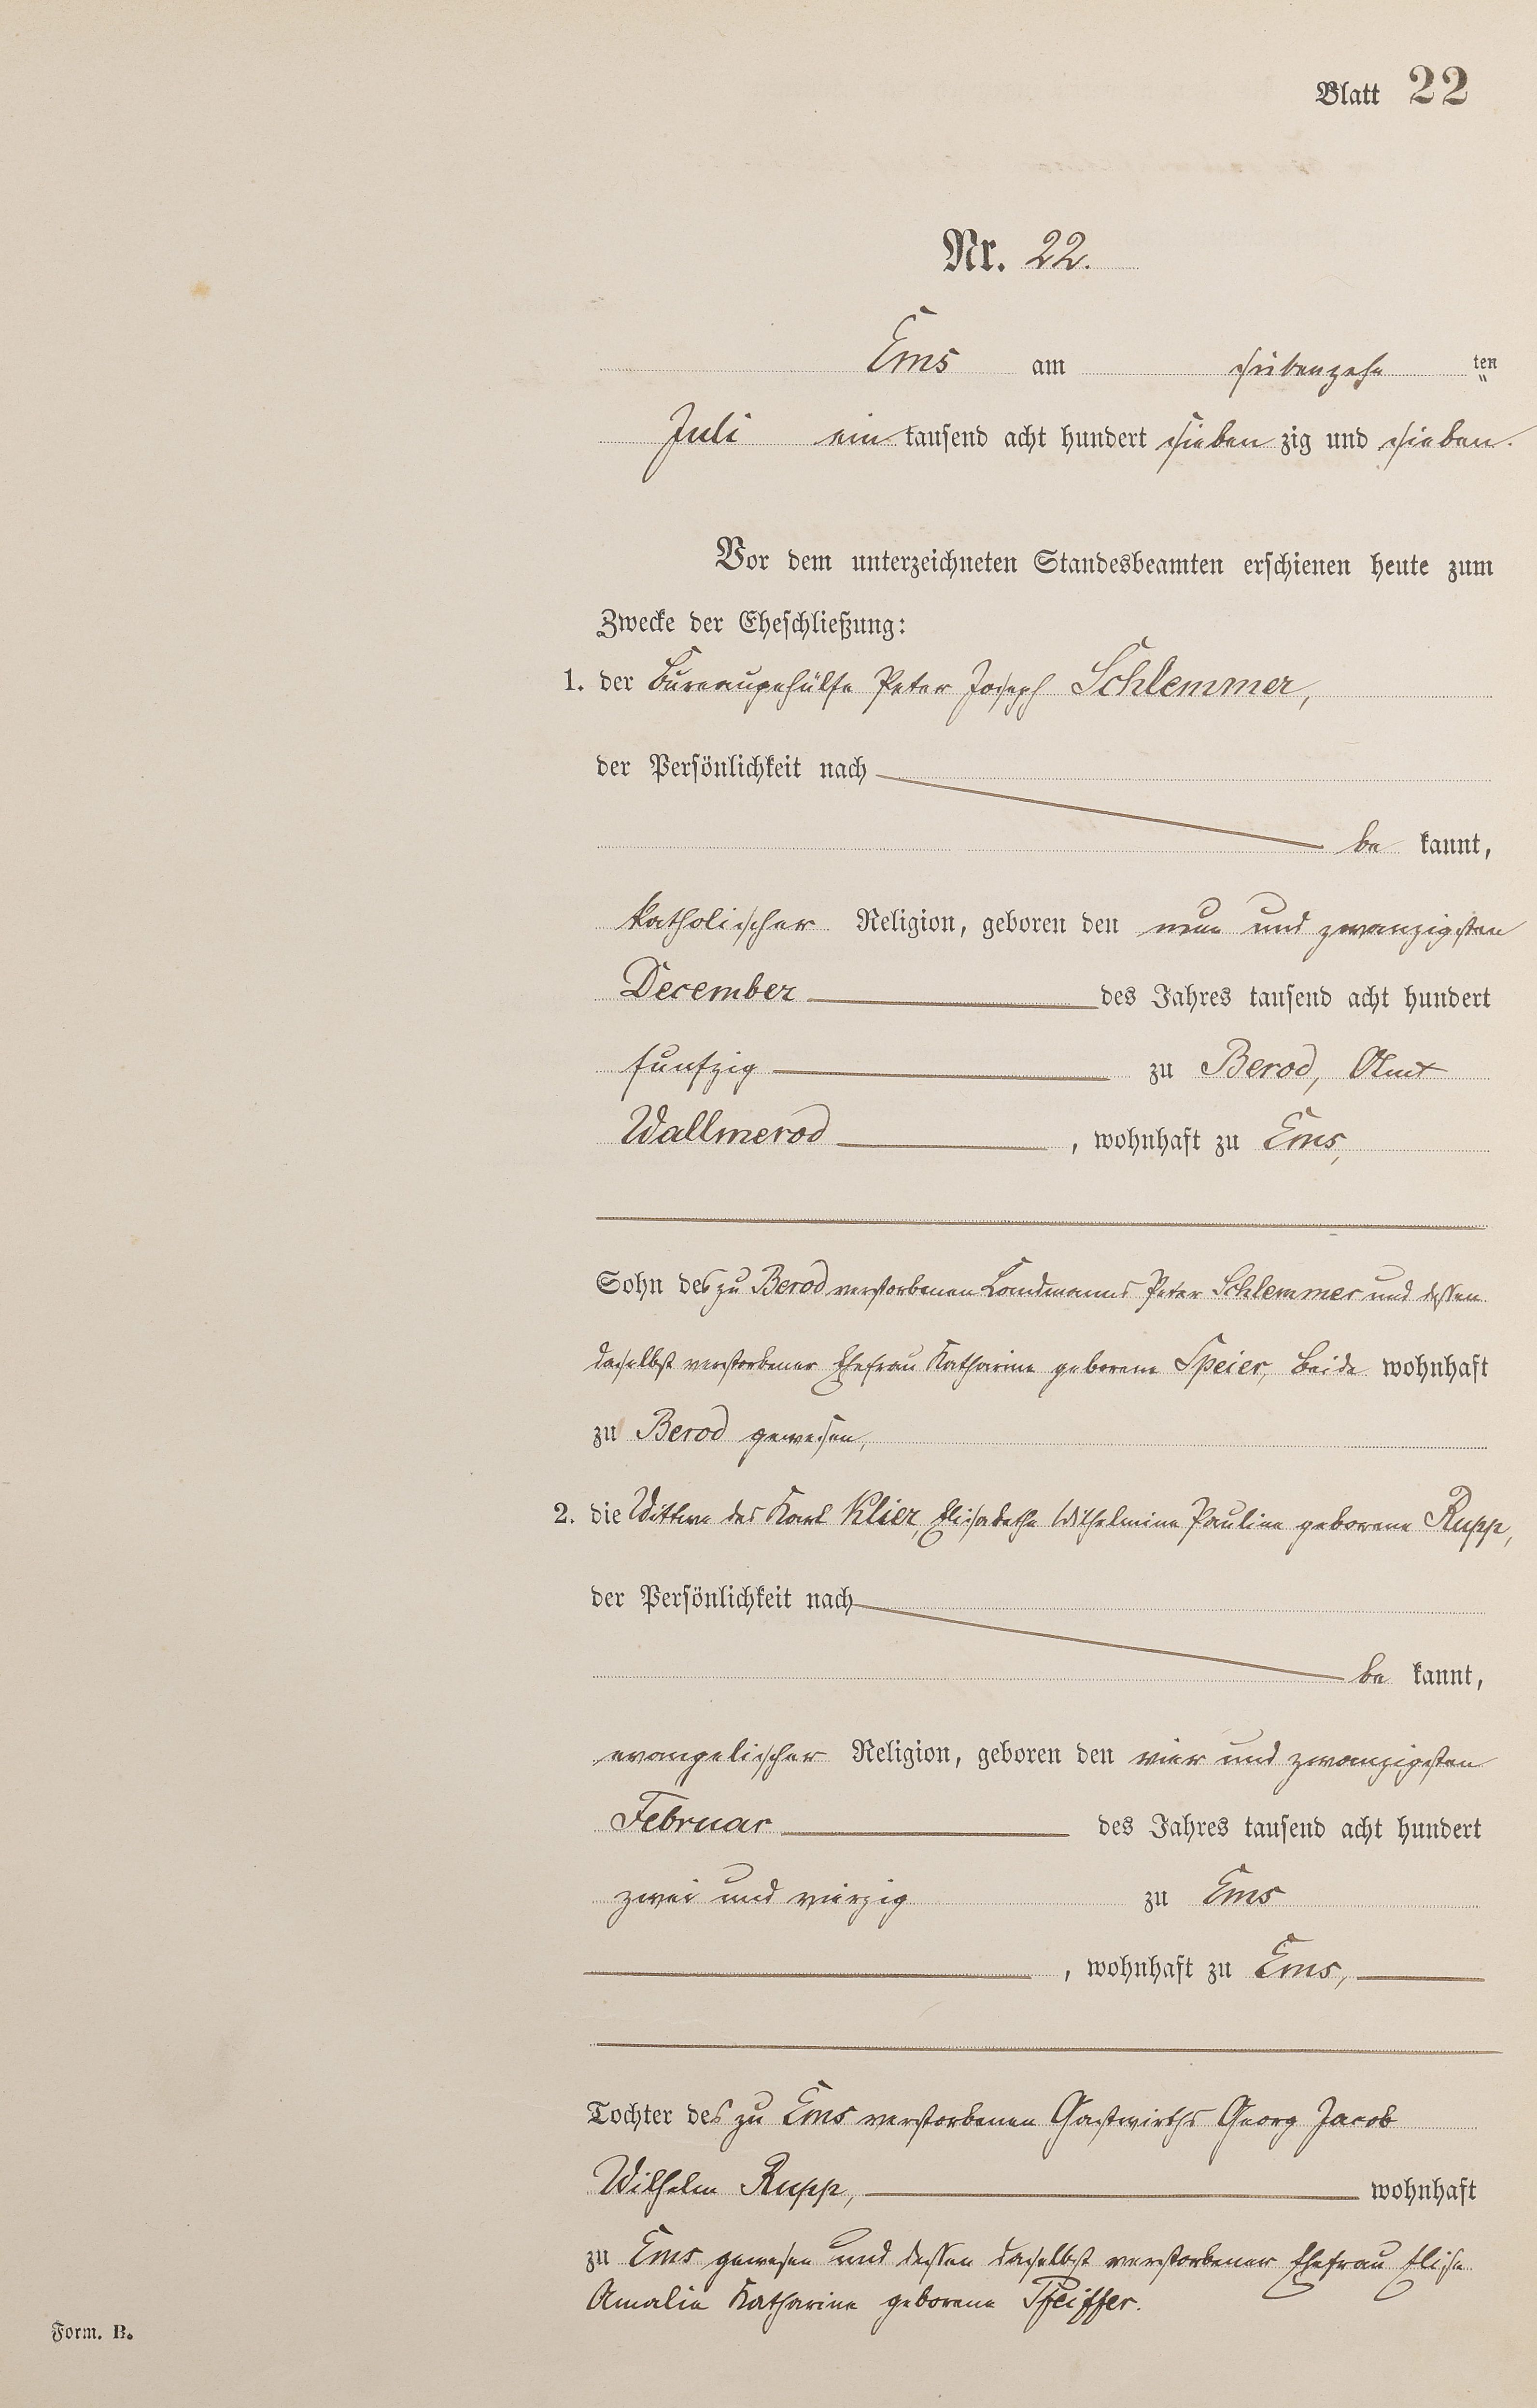 Blatt 22
Nr. 22.
Ems am siebenzehn ten
Juli ein tausend acht hundert sieben zig und sieben.
Vor dem unterzeichneten Standesbeamten erschienen heute zum
Zwecke der Eheschließung:
1. der Bureaugehülfe Peter Joseph Schlemmer,
der Persönlichkeit nach
be kannt,
katholischer Religion, geboren den neun und zwanzigsten
December des Jahres tausend acht hundert
funfzig zu Berod, Amt
Wallmerod, wohnhaft zu Ems,
Sohn des zu Berod verstorbenen Landmanns Peter Schlemmer und dessen
daselbst verstorbener Ehefrau Katharine geborene Speier, beide wohnhaft
zu Berod gewesen,
2. die Wittwe des Karl Klier, Elisabethe Wilhelmine Pauline geborene Rupp,
der Persönlichkeit nach
be kannt,
evangelischer Religion, geboren den vier und zwanzigsten
Februar des Jahres tausend acht hundert
zwei und vierzig zu Ems
, wohnhaft zu Ems,
Tochter des zu Ems verstorbenen Gastwirths Georg Jacob
Wilhelm Rupp, wohnhaft
zu Ems gewesen und dessen daselbst verstorbener Ehefrau Elise
Amalie Katharine geborene Pfeiffer.
Form. B.